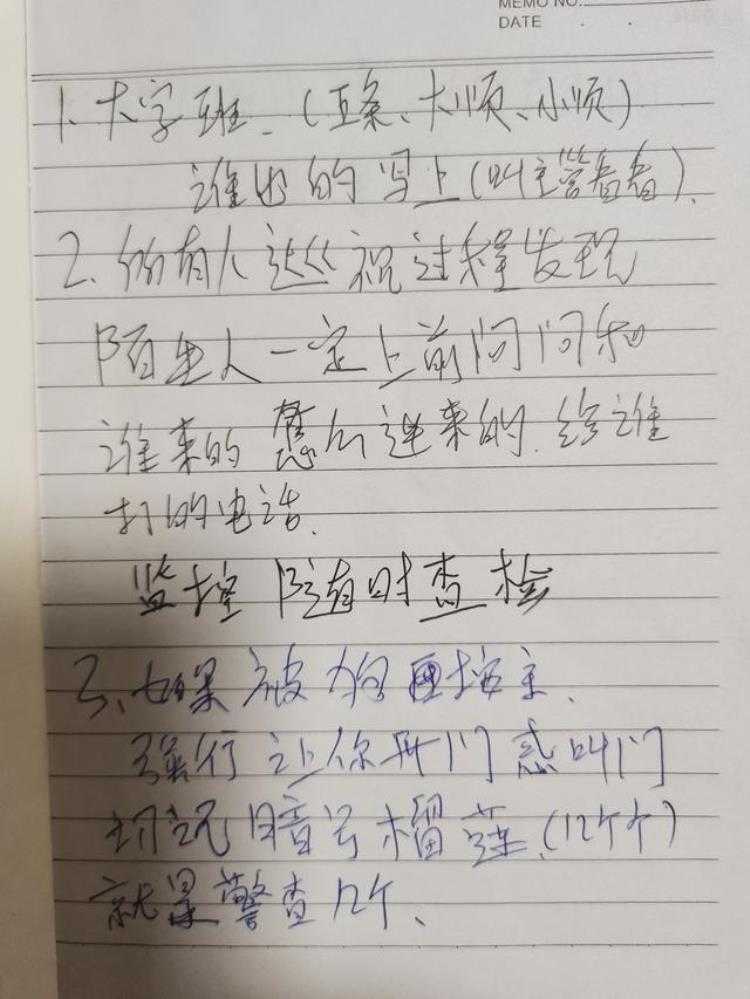 MEMO NO.
DATE . .
1. 大字班.(五条、大顺、小顺)
谁出的写上(叫主营看看).
2. 所有人巡视过程发现
陌生人一定上前问问和
谁来的 怎么进来的.给谁
打的电话.
监控 随有时查检
3、如果被狗 按主.
强行让你开门 惑叫门
切记暗号榴莲.(12个个)
就是警查几个、